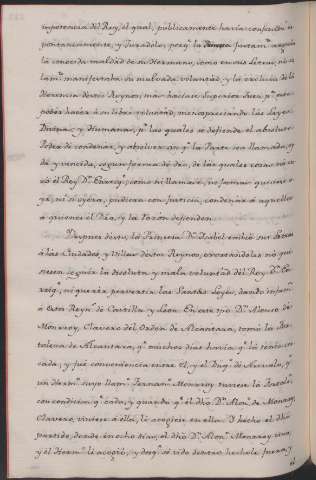 impotencia del Rey, el qual, publicamente havia confesado
pontaneamente, y Jurado lo, porq. la
la conocida maldad de su Hermano, como en sus Letras,
manifestaba su malvada voluntad, y la excluia de la
Herencia destos Reynos, mas haciase Superior
poder hacer a su libre voluntad, menospreciando las Leyes
Divina y Humanas, pr. las quales se defiende el absoluto
Poder de condenar, y absolver sin q. la Parte sea llamada, oy
da, y vencida, segun forma de dro, de las quales cosas
el Rey Dn. Enrriq. como ni llamare, ni
ni si oyera, pudiera con Justicia, condenar a aquellos
a quienes el Dro, y la Razon defienden.
Despues desto, la Princesa Da. Isabel embió sus Letras
a las Ciudades, y Villas destos Reynos, exortandolos no qui-
siesen seguir la disoluta y mala voluntad del Rey Dn. En-
rriq. ni querer pervertir las Santas Leyes, dando
a estos Reyns. de Castilla y Leon. En este tpo Dn. Alonso de
Monrroy, Clavero del Orden de Alcantara, tomó la For-
taleza de Alcantara, q. muchos dias havia q. la tenia cer-
cada, y fue conveniencia entre el, y el Duq. de Arevalo, q.
un Herm. suyo llam. Fernan. Monrroy tuviese la Fortale.
con condicion q. cada, y quando q. el dho Dn. Alon. de Monrroy
Clavero, viniese á ella, le acogiese en ella. Y hecho el dho
partido, dende en ocho dias, el dho Dn. Alon. Monrroy vino,
y el Herm. le acogió, y desq. se vido dentro hechole fuera, y